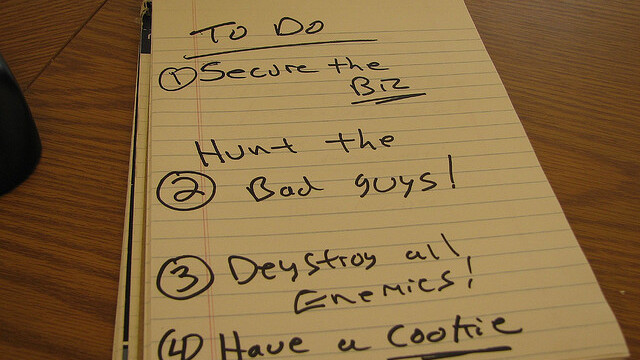 To Do
① Secure the
Biz
Hunt the
② Bad guys!
③ Deystroy all
Enemies!
④ Have a cookie